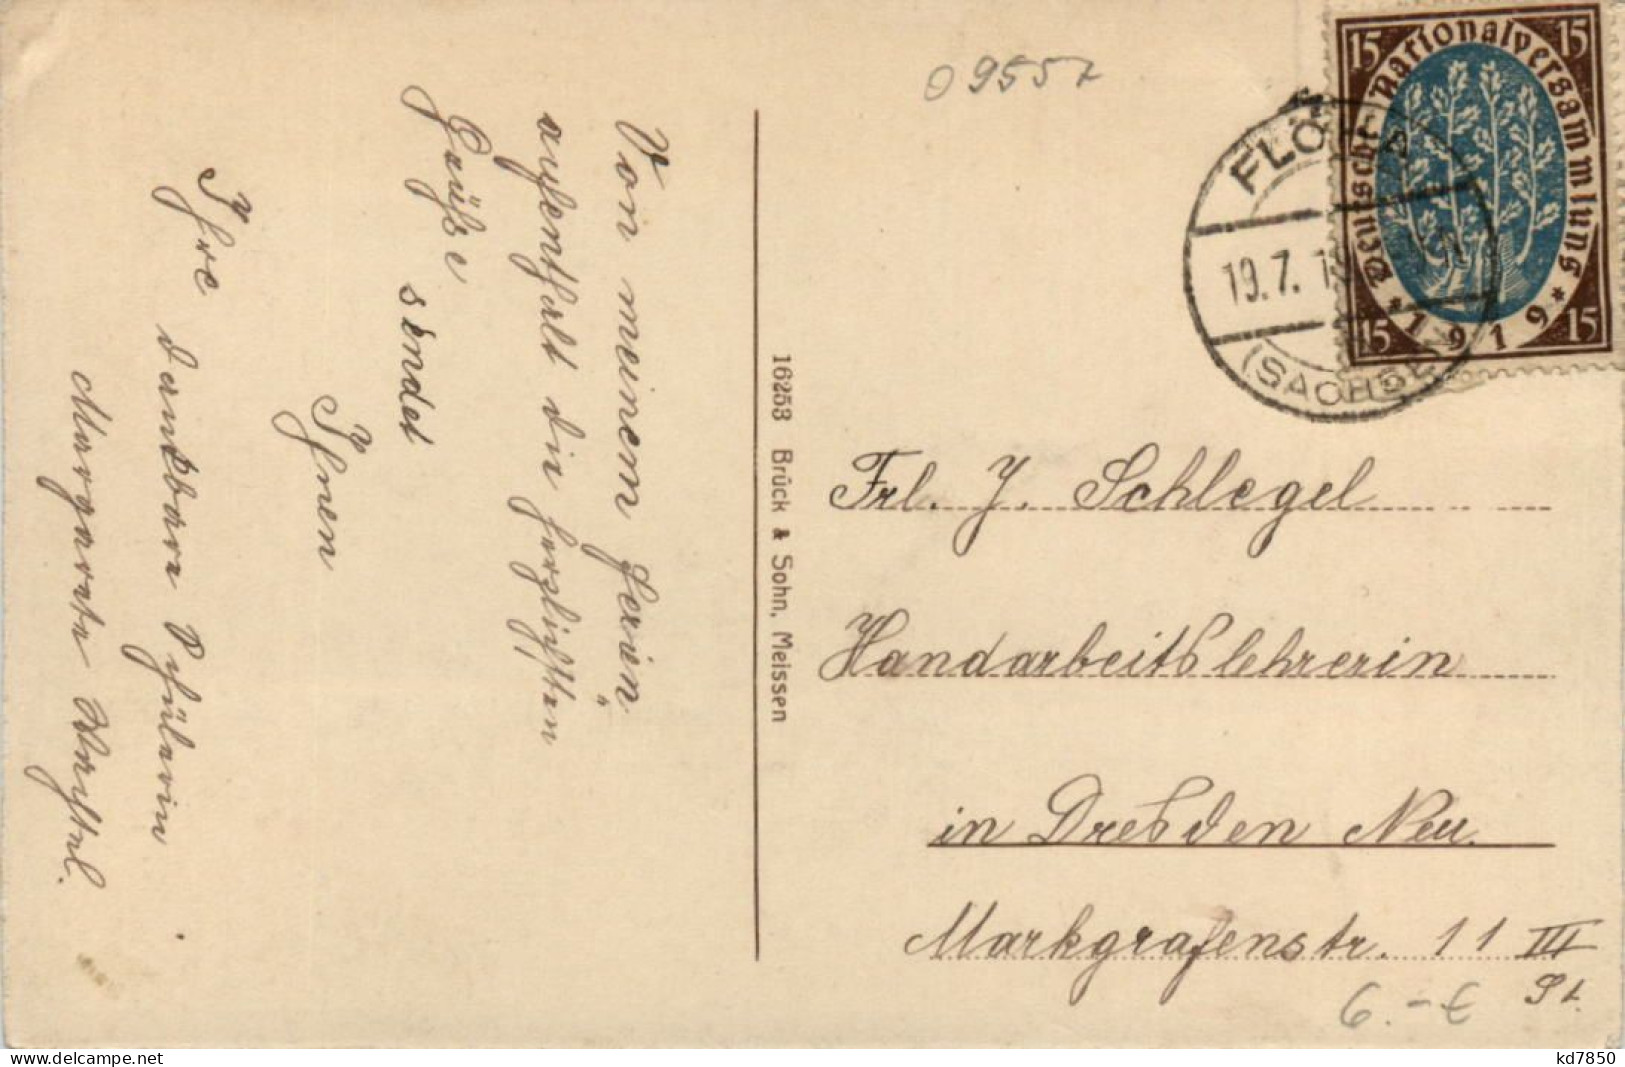 Von meinem Ferien
aufenthalt die herzlichsten
Grüße sendet
Ihnen
Ihre dankbare Schülerin
Margarete
16253 Brück & Sohn, Meissen
09557
Deutsche Nationalversammlung
* 1919 *
15 15
15 15
FLÖHA
19.7.19
(SACHSEN)
Frl. J. Schlegel
Handarbeitslehrerin
in Dresden Neu.
Markgrafenstr. 11 III
St.
6.-€
www.delcampe.net
kd7850